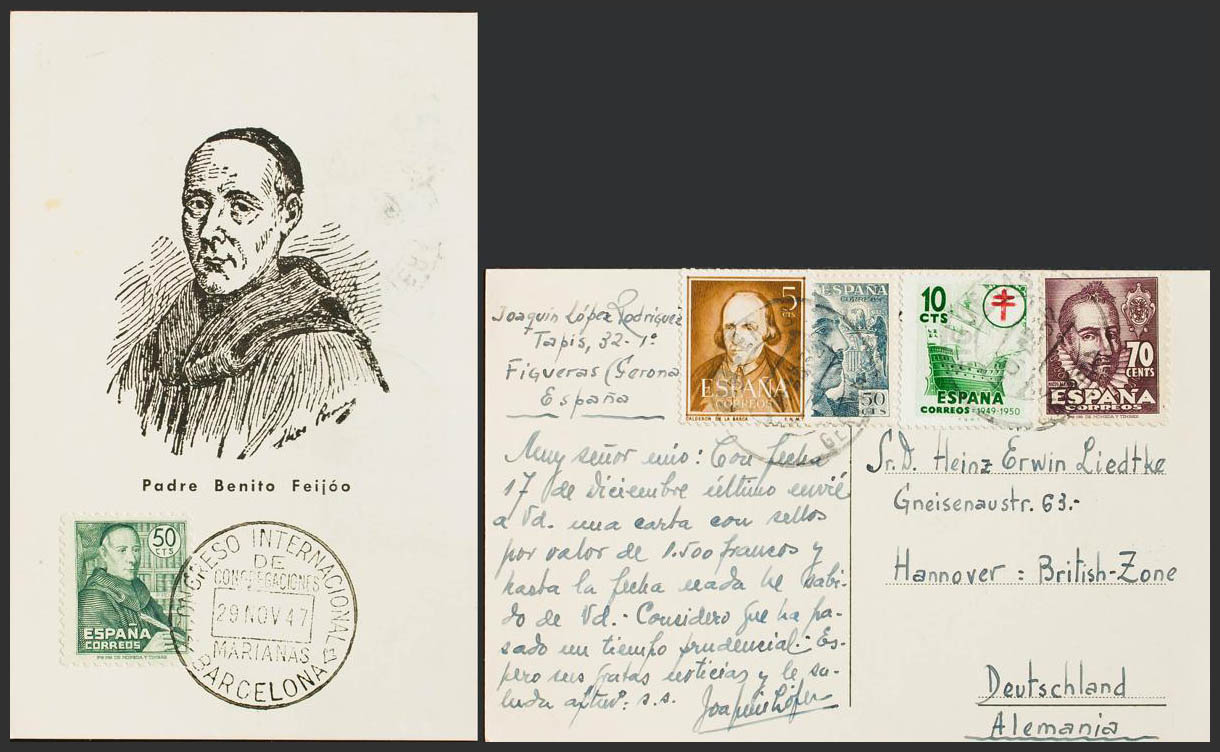 Padre Benito Feijóo
50
CTS
ESPAÑA
CORREOS
CONGRESO INTERNACIONAL
DE
CONGREGACIONES
29 NOV 47
MARIANAS
BARCELONA
Joaquín López Rodríguez
Tapis, 32-1º
Figueras (Gerona
España
5
CTS
ESPAÑA
CORREOS
CALDERON DE LA BARCA
ESPAÑA
CORREOS
50
CTS
10
CTS
ESPAÑA
CORREOS=1949-1950
70
CENTS
ESPAÑA
CORREOS
Muy señor mio: Con fecha
17 de diciembre último envié
a Vd. una carta con sellos
por valor de 1.500 francos y
hasta la fecha nada he sabi-
do de Vd.- Considero que ha pa-
sado un tiempo prudencial.- Es-
pero sus gratas noticias y le sa-
luda s.s.
Joaquín López
Sr. D. Heinz Erwin Liedtke
Gneisenaustr. 63.-
Hannover = British-Zone
Deutschland
Alemania